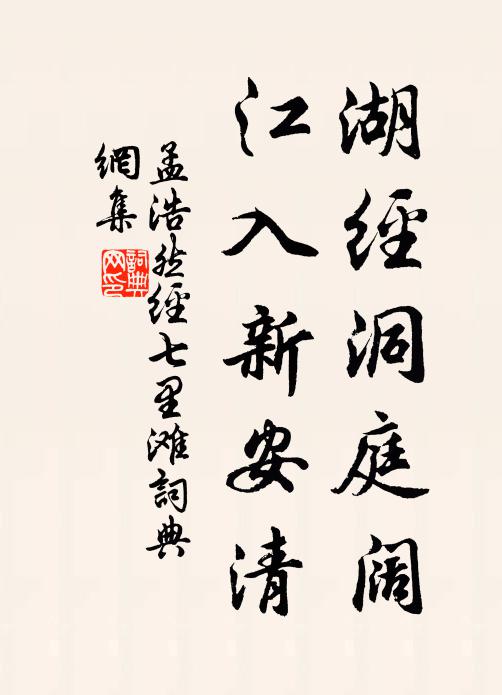 湖經洞庭闊
江入新安清
孟浩然經七里滩詞典
網集
詞典
网印